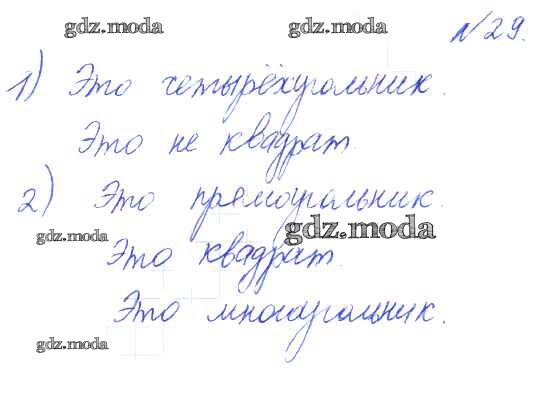 gdz.moda gdz.moda №29.
1) Это четырёхугольник.
Это не квадрат.
2) Это прямоугольник.
gdz.moda gdz.moda
Это квадрат.
Это многоугольник.
gdz.moda